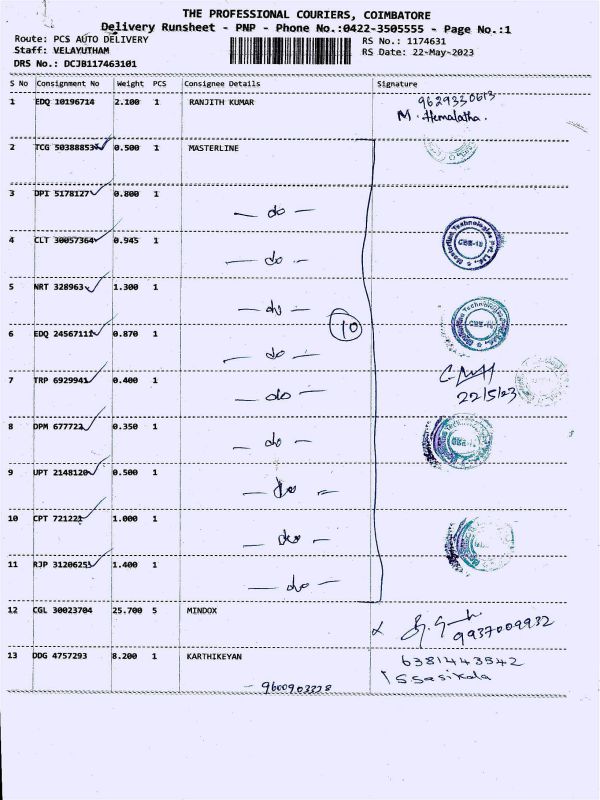 THE PROFESSIONAL COURIERS, COIMBATORE
Delivery Runsheet - PNP - Phone No.:0422-3505555 - Page No.:1
Route: PCS AUTO DELIVERY
RS No.: 1174631
Staff: VELAYUTHAM
RS Date: 22-May-2023
DRS No.: DCJB117463101
S No Consignment No Weight PCS Consignee Details Signature
1 EDQ 10196714 2.100 1 RANJITH KUMAR 9629330613
M. Hemalatha.
2 TCG 50388853 0.500 1 MASTERLINE
3 DPI 5178127 0.800 1
— do —
4 CLT 30057364 0.945 1
— do —
5 NRT 328963 1.300 1
— do —
10
6 EDQ 24567111 0.870 1
— do —
7 TRP 6929941 0.400 1
— do —
22/5/23
8 DPM 677722 0.350 1
— do —
9 UPT 2148120 0.500 1
— do —
10 CPT 721221 1.000 1
— do —
11 RJP 31206255 1.400 1
— do —
12 CGL 30023704 25.700 5 MINDOX
9937009932
13 DDG 4757293 8.200 1 KARTHIKEYAN 6381443542
S Sasikala